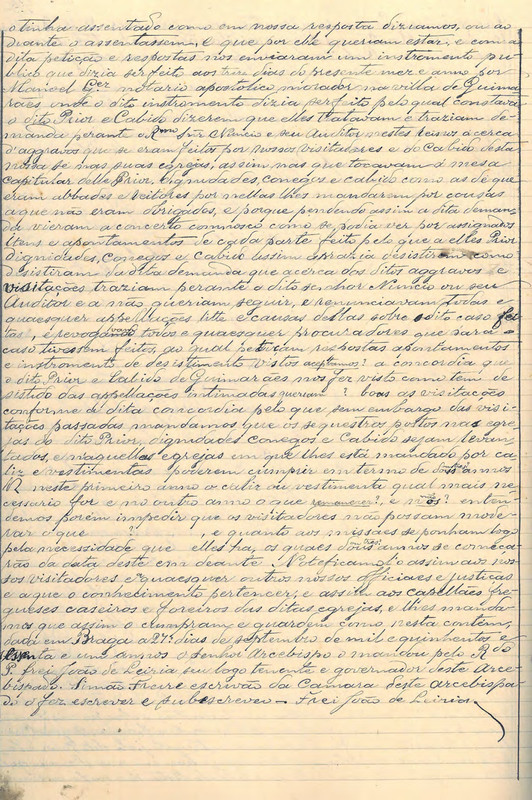 o tinha assentado como em nossa resposta diziamos, ou ao
diante o assentassem, e que por elle queriam estar, e com a
dita petição e respostas nos enviaram um instromento pu
blico que dizia ser feito aos tres dias do presente mez e anno por
Manoel Glz notario apostolico morador na villa de Guima
rães onde o dito instromento dizia ser feito pelo qual constava
o dito Prior e Cabido dizerem que elles tratavam e traziam de
manda perant o Rmo Snr Nuncio e seu Auditor nestes Reinos acerca
d'aggravos que se eram feitos por nossos visitadores e do Cabido desta
nossa Sé nas suas egrejas, assim nas que tocavam á mesa
capitular delle Prior, dignidades, conegos e cabido como as de que
eram abbades e reitores por nellas lhes mandarem por cousas
a que não eram obrigados, e porque pendendo assim a dita deman
da vieram a concerto comnosco como se podia ver por assignados
Itens e apontamentos de cada parte feito pelo que a elles Prior
Dignidades, Conegos e Cabido assim aprazia desistirem como
desistiram da dita demanda que acerca dos ditos aggravos e
visitações traziam perante o dito senhor Nuncio ou seu
Auditor e a não queriam seguir, e renunciavam todas e
quaesquer appellações lite e causas dellas sobre o dito caso fei
tas, e revogando vam todos e quaesquer procuradores que para o
caso tivessem feitos, ao qual petiçam respostas apontamentos
e instromento de desistimento vistos acceptamos? a concordia que
o dito Prior e Cabido de Guimarães nos foi visto como tem de
sistido das appellações intimadas queriam ? boas as visitações
conforme a dita concordia pelo que sem embargo das visi
tações passadas mandamos que os sequestros postos nas egre
jas do dito Prior, dignidades conegos e Cabido sejam levan
tados, e naquellas egrejas em que lhes está mandado por ca
liz e vestimentas poderem cumprir em termo de dous annos
neste primeiro anno o caliz ou vestimenta qual mais ne
cessario for e no outro anno o que remanecer?, e nós? enten
demos porém impedir que os visitadores não possam mode
rar o que ?? , e quanto aos missaes se ponham logo
pela necessidade que elles ha, os quaes dous annos se começa
rão da data deste em deante. Notificamol o assim aos nos
sos visitadores e quaesquer outros nossos officiaes e justiças
e a que o conhecimento pertencer, e assim aos capellães fre
gueses caseiros e foreiros das ditas egrejas, e lhes manda
mos que assim o cumpram e guardem como nesta contém,
dada em Braga a 27 dias de septembro de mil e quinhentos e
sesenta e um annos o Senhor Arcebispo o mandou pelo Rdo
P. frei João de Leiria seu logo tenente e governador deste Arce
bispado. Simão Freire escrivão da Camara deste arcebispa
do o fez escrever e subescreveo – Frei João de Leiria